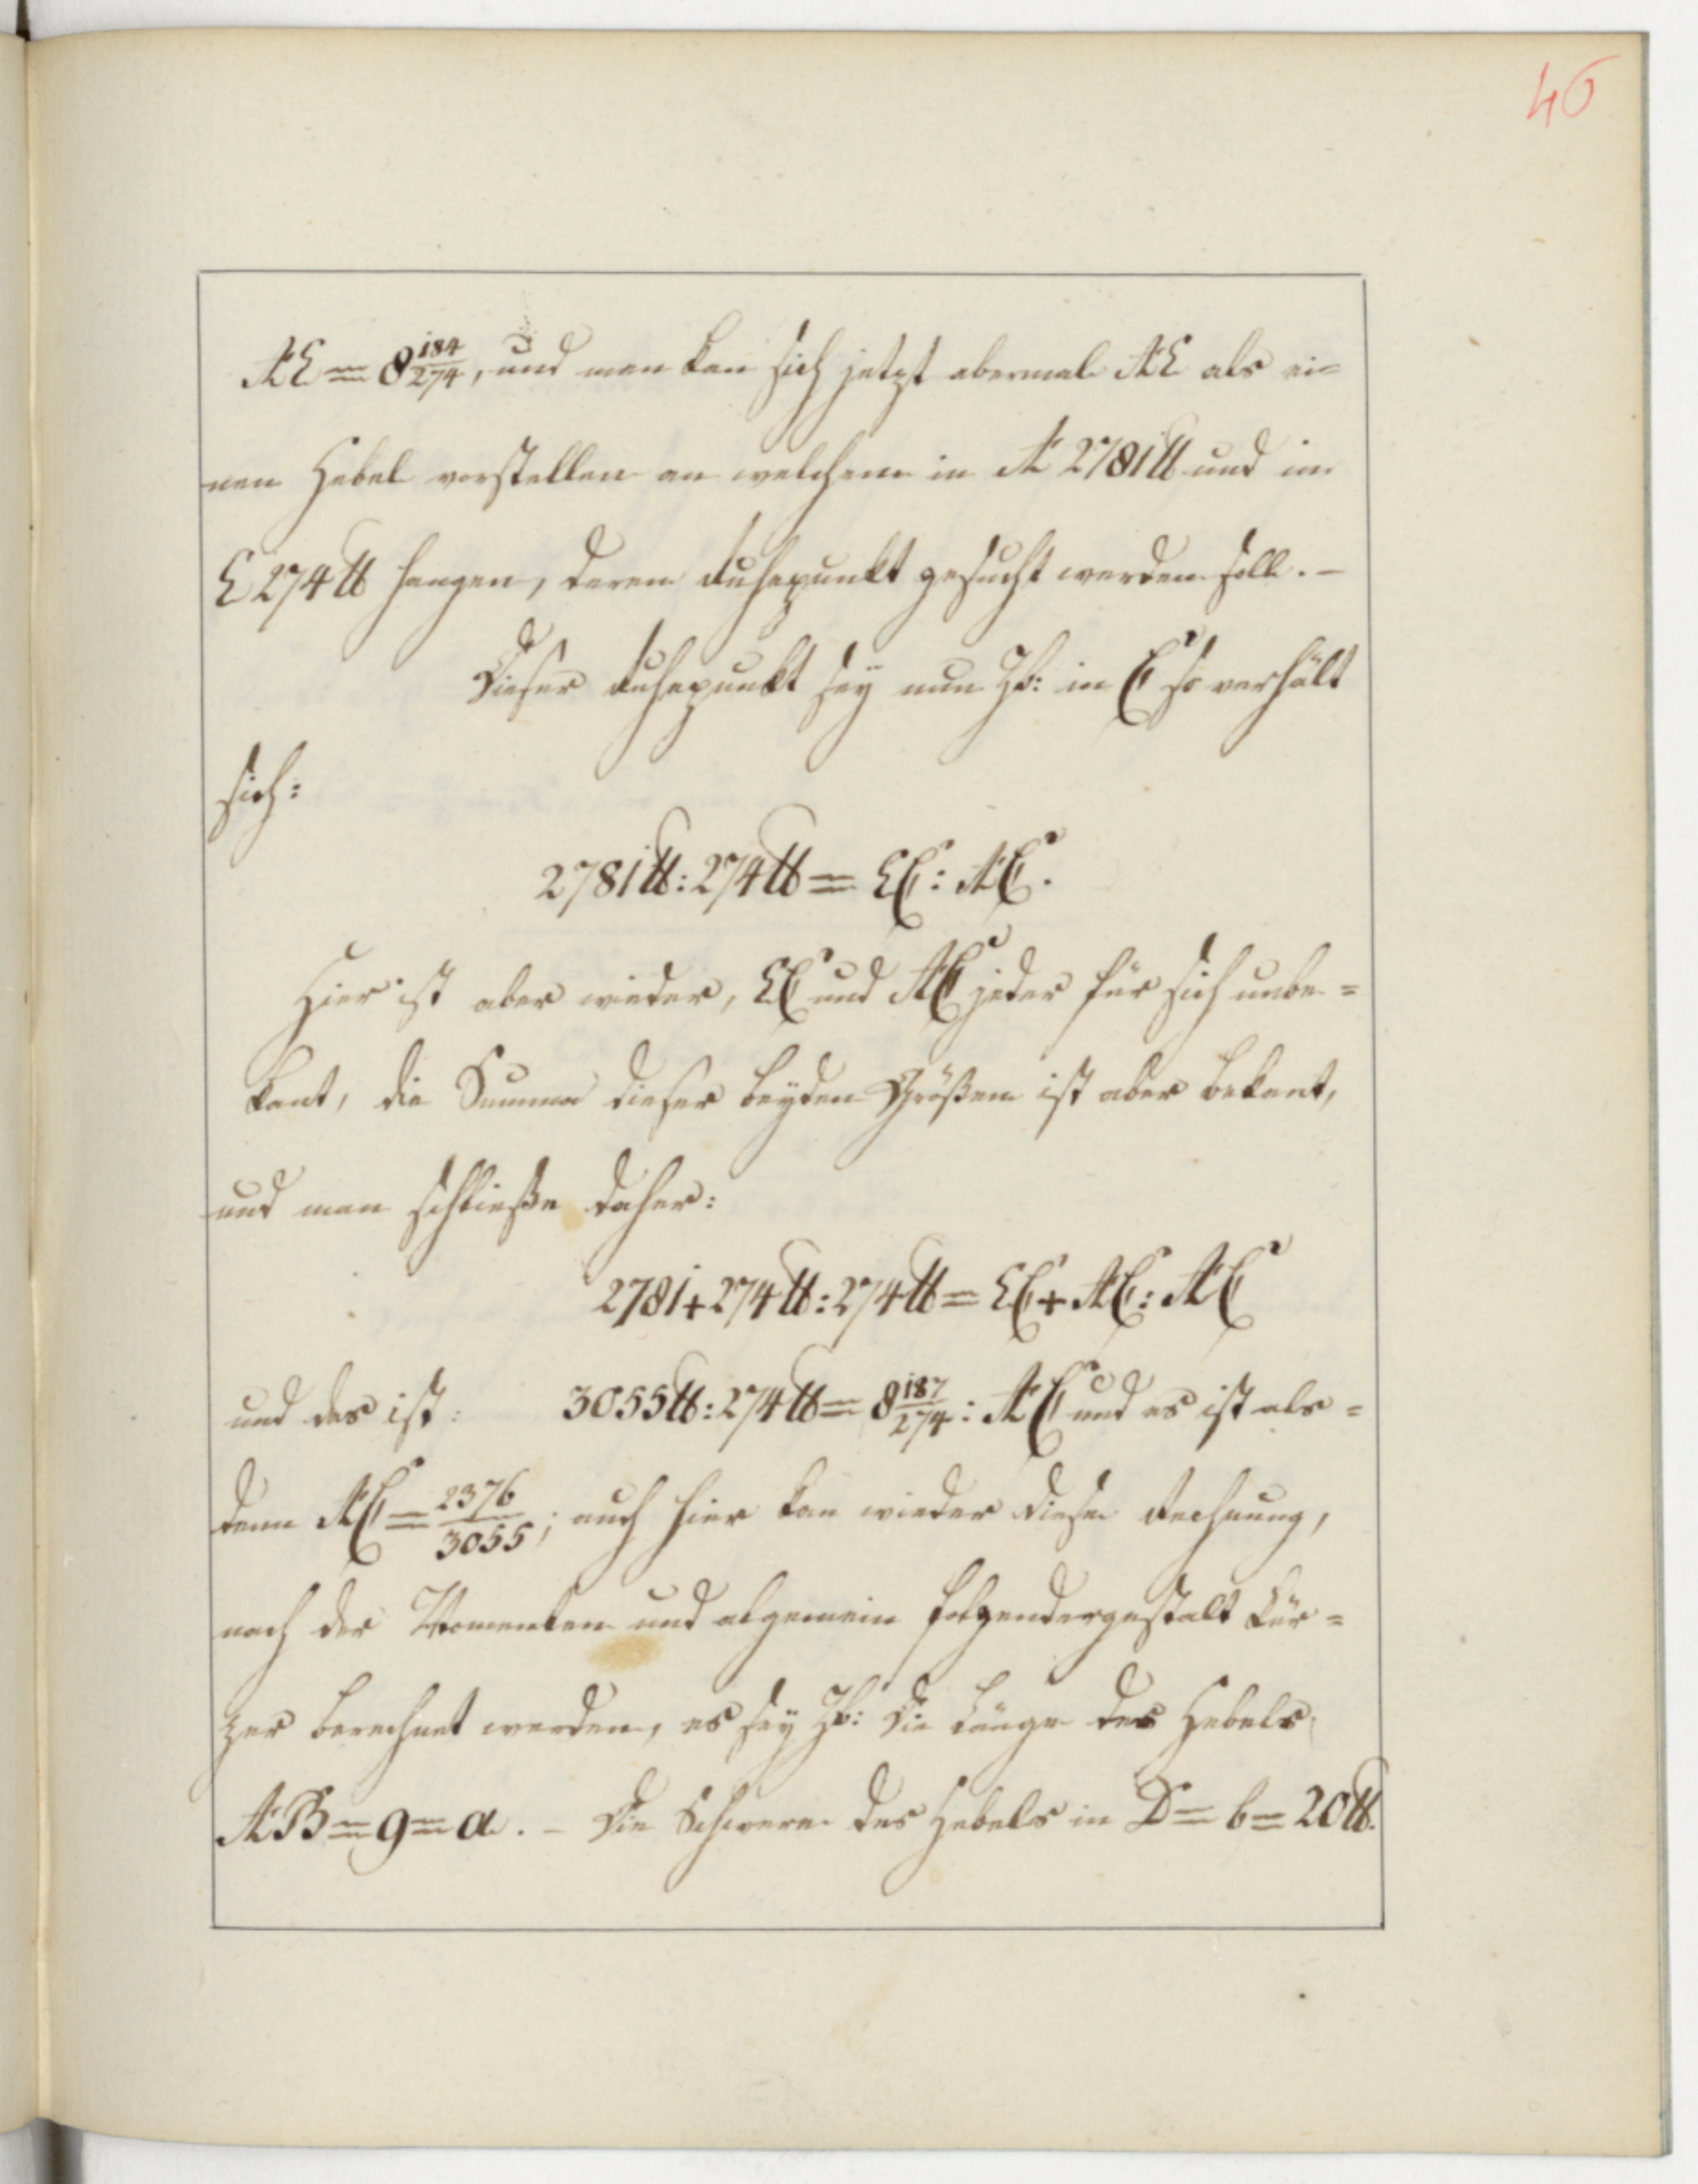 46
AE = 8 184/274, und man kan sich jetzt abermal AE als ei=
nen Hebel vorstellen an welchem in A 2781 ℔ und in
E 274 ℔ hangen, deren Ruhepunkt gesucht werden soll. –
Dieser Ruhepunkt sey nun Zb: in C so verhält
sich:
2781 ℔ : 274 ℔ = EC : AC.
Hier ist aber wieder, EC und AC jeder für sich unbe=
kant, die Summa dieser beyden Größen ist aber bekant,
und man schließe daher:
2781 + 274 ℔ : 274 ℔ = EC + AC : AC
und das ist: 3055 ℔ : 274 ℔ = 8 187/274 : AC und es ist als=
denn AC = 2376/3055; auch hier kan wieder diese Rechnung,
nach der Momenten und algemein folgendergestalt kür=
zer berechnet werden, es sey Zb: die Länge des Hebels
AB = 9 = a. – Die Schwere des Hebels in D = b = 20 ℔.